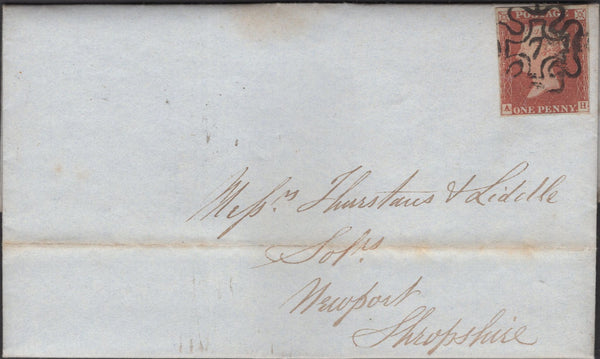 POSTAGE
7
A H
ONE PENNY
Messrs Thurstans & Liddle
Solrs
Newport
Shropshire